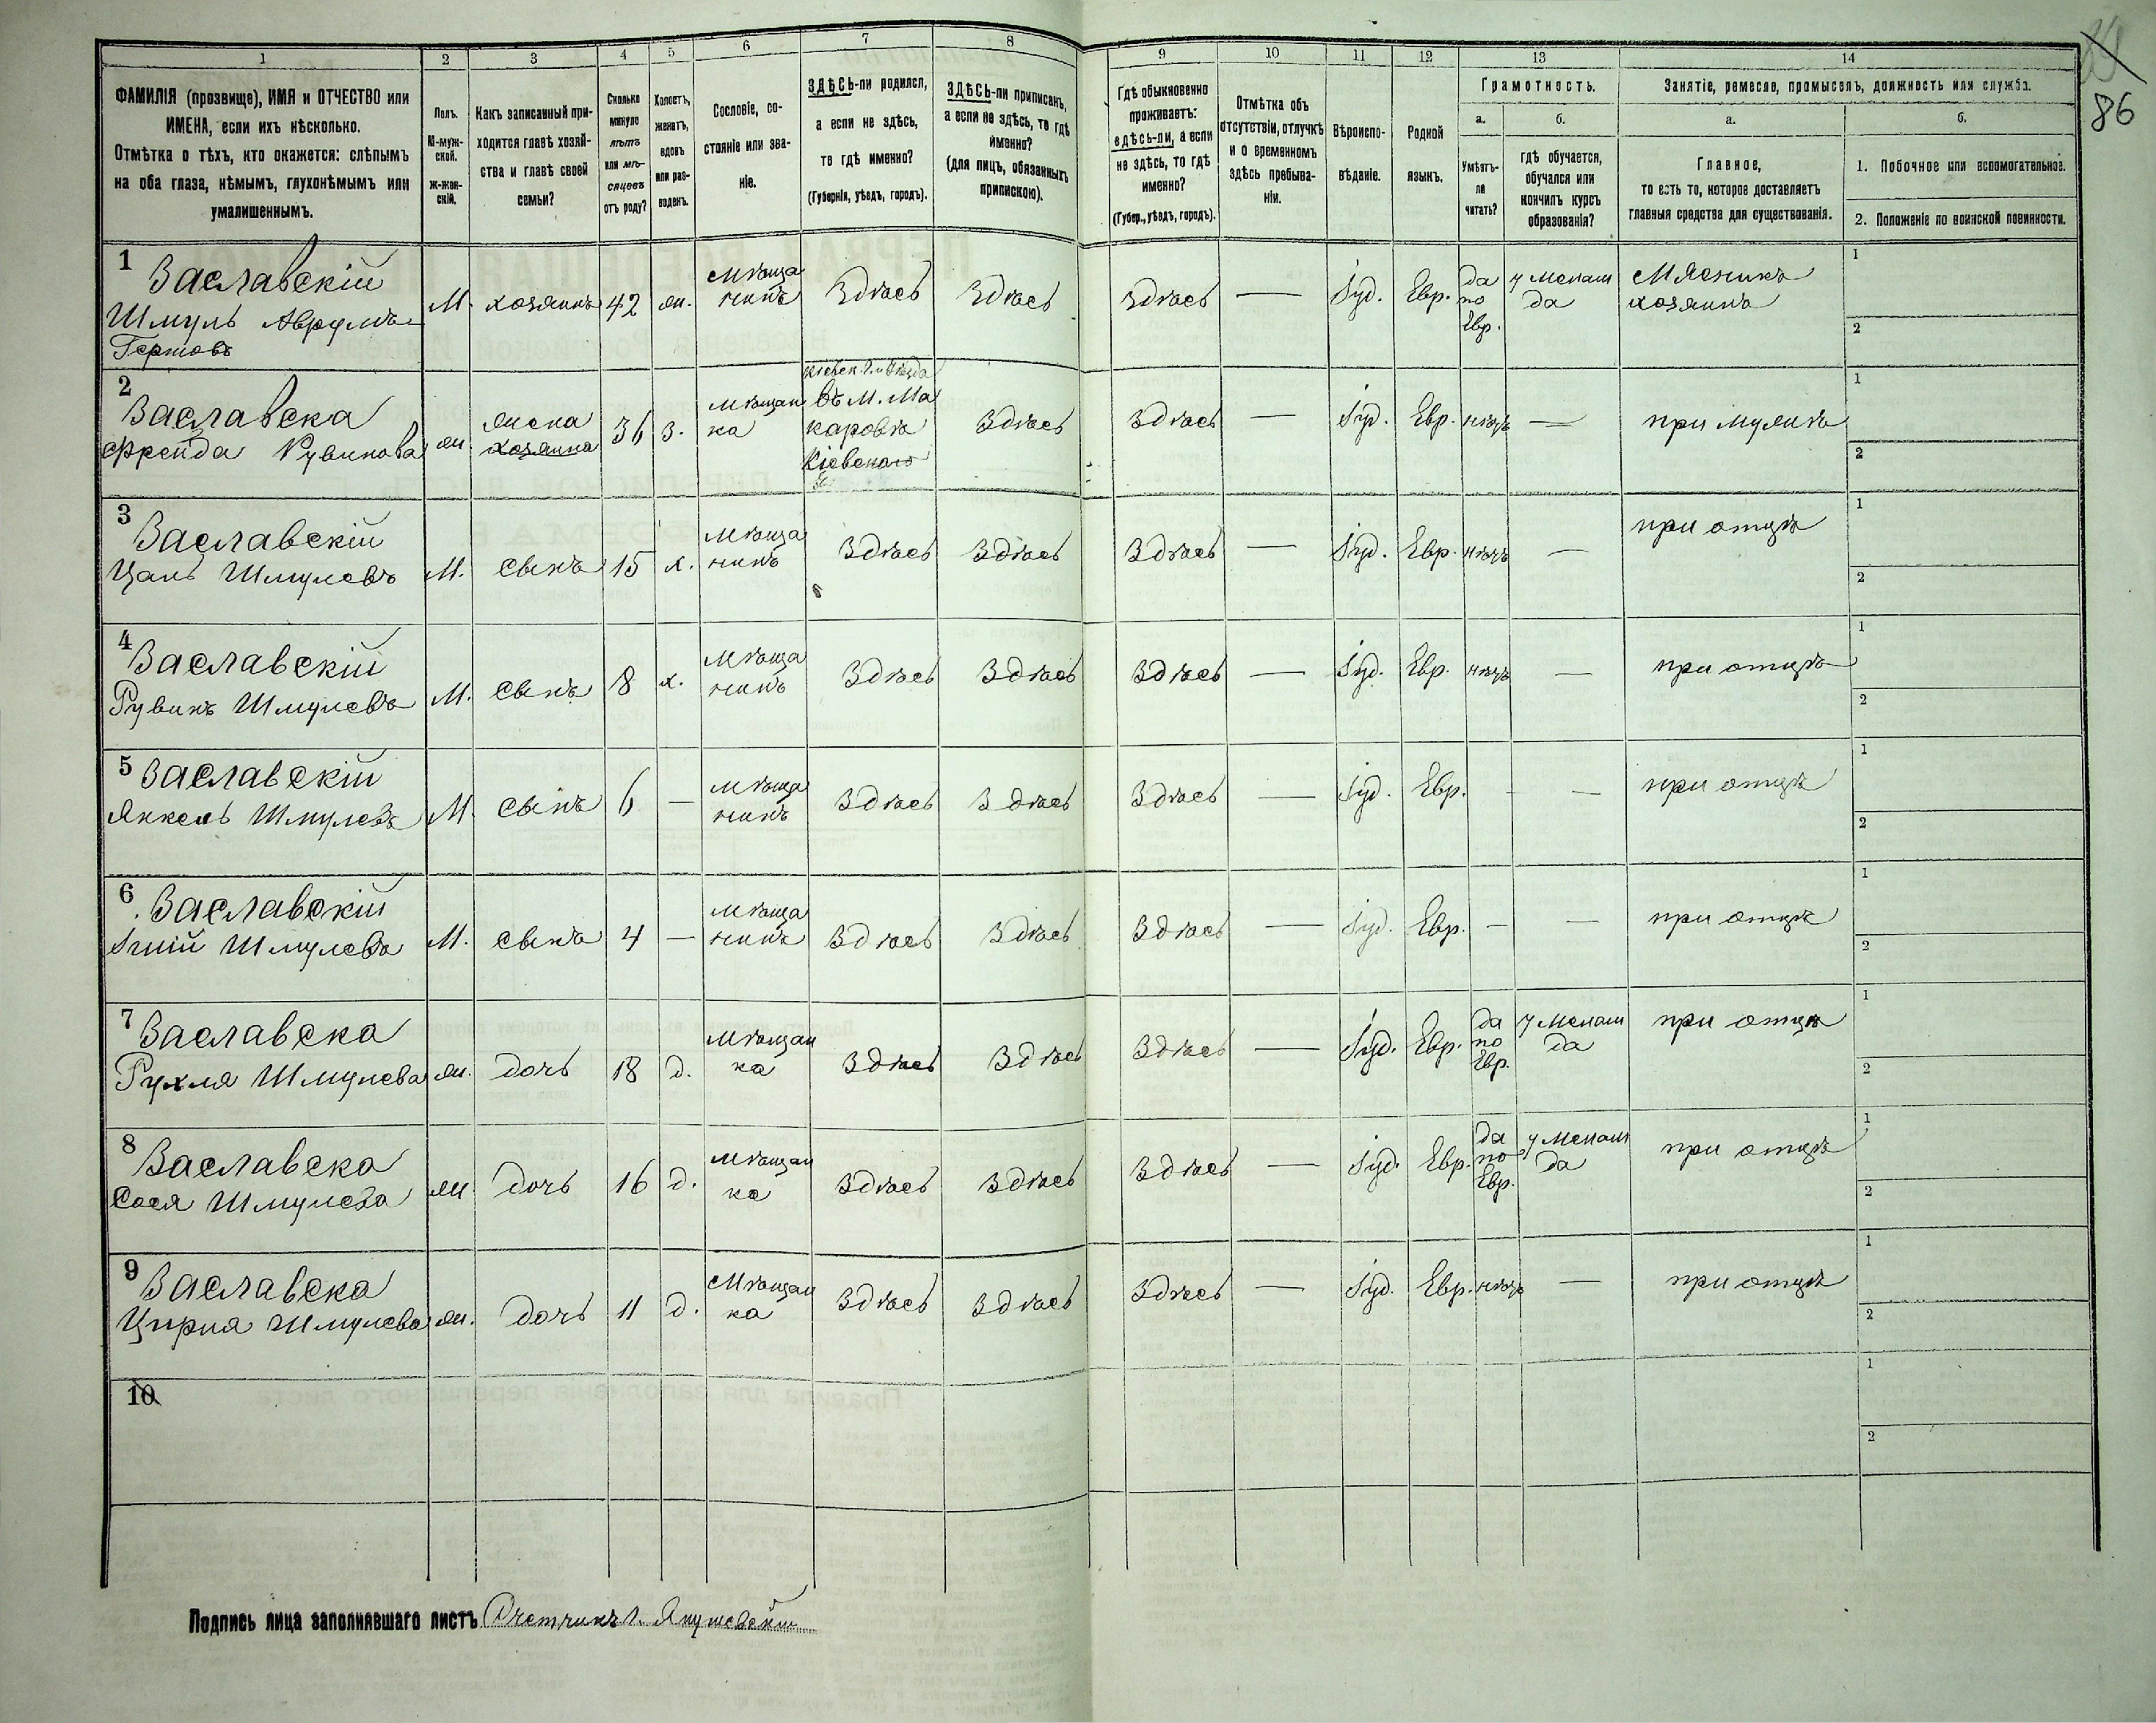 86
1 2 3 4 5 6 7 8 9 10 11 12 13 14
ФАМИЛІЯ (прозвище), ИМЯ и ОТЧЕСТВО или
ИМЕНА, если ихъ нѣсколько.
Отмѣтка о тѣхъ, кто окажется: слѣпымъ
на оба глаза, нѣмымъ, глухонѣмымъ или
умалишеннымъ.
Полъ.
М-муж-
ской.
ж-жен-
скій.
Какъ записанный при-
ходится главѣ хозяй-
ства и главѣ своей
семьи?
Сколько
минуло
лѣтъ
или мѣ-
сяцевъ
отъ роду?
Холостъ,
женатъ,
вдовъ
или раз-
веденъ.
Сословіе, со-
стояніе или зва-
ніе.
ЗДѢСЬ-ли родился,
а если не здѣсь,
то гдѣ именно?
(Губернія, уѣздъ, городъ).
ЗДѢСЬ-ли приписанъ,
а если не здѣсь, то гдѣ
именно?
(для лицъ, обязанныхъ
припискою).
Гдѣ обыкновенно
проживаетъ:
здѣсь-ли, а если
не здѣсь, то гдѣ
именно?
(Губер., уѣздъ, городъ).
Отмѣтка объ
отсутствіи, отлучкѣ
и о временномъ
здѣсь пребыва-
ніи.
Вѣроиспо-
вѣданіе.
Родной
языкъ.
Грамотность.
а.
Умѣетъ-
ли
читать?
б.
гдѣ обучается,
обучался или
кончилъ курсъ
образованія?
Занятіе, ремесло, промыселъ, должность или служба.
а.
Главное,
то есть то, которое доставляетъ
главныя средства для существованія.
б.
1. Побочное или вспомогательное.
2. Положеніе по воинской повинности.
1
Заславскій
Шмуль Аврумъ
М. хозяинъ 42 ж.
мѣща
нинъ
Здѣсь Здѣсь Здѣсь — Іуд. Евр.
да
по
Евр.
у Мелам
да
Мясникъ
хозяинъ
1
2
2
Заславска
Фрейда Рувинова
ж.
жена
хозяина
36 з.
мѣщан
ка
въ М. Ма
каровѣ
Кіевскаго
Здѣсь Здѣсь — Іуд. Евр. нѣтъ — при мужѣ
1
2
3
Заславскій
Шмулевъ
М. сынъ 15 х.
мѣща
нинъ
Здѣсь Здѣсь Здѣсь — Іуд. Евр. нѣтъ — при отцѣ
1
2
4
Заславскій
Рувинъ Шмулевъ
М. сынъ 8 х.
мѣща
нинъ
Здѣсь Здѣсь Здѣсь — Іуд. Евр. нѣтъ — при отцѣ
1
2
5
Заславскій
Янкель Шмулевъ
М. сынъ 6 —
мѣща
нинъ
Здѣсь Здѣсь Здѣсь — Іуд. Евр. - — при отцѣ
1
2
6
Заславскій
Шмулевъ
М. сынъ 4 —
мѣща
нинъ
Здѣсь Здѣсь Здѣсь — Іуд. Евр. — — при отцѣ
1
2
7
Заславска
Рухля Шмулева
ж. дочь 18 д.
мѣщан
ка
Здѣсь Здѣсь Здѣсь — Іуд. Евр.
да
по
Евр.
у Мелам
да
при отцѣ
1
2
8
Заславска
Сося Шмулева
ж дочь 16 д.
мѣщан
ка
Здѣсь Здѣсь Здѣсь — Іуд. Евр.
да
по
Евр.
у Мелам
да
при отцѣ
1
2
9
Заславска
Ципря Шмулева
ж. дочь 11 д.
мѣщан
ка
Здѣсь Здѣсь Здѣсь — Іуд. Евр. нѣтъ — при отцѣ
1
2
10
1
2
Подпись лица заполнявшаго листъ Счетчикъ